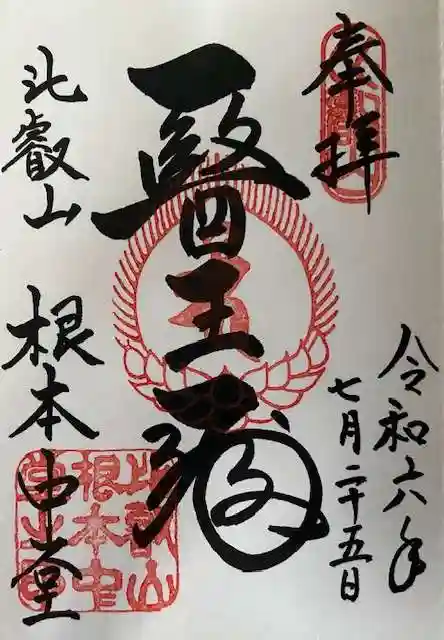 奉拝
令和六年
七月二十五日
醫王殿
比叡山
根本中堂
比叡山
根本中
堂之印